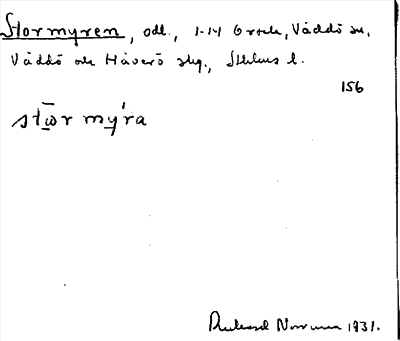 Stormyren, odl., 1-14 Ortala, Väddö sn,
Väddö och Häverö skg., Sthlms l.
156
stω̄r mýra
Norrman 1931.